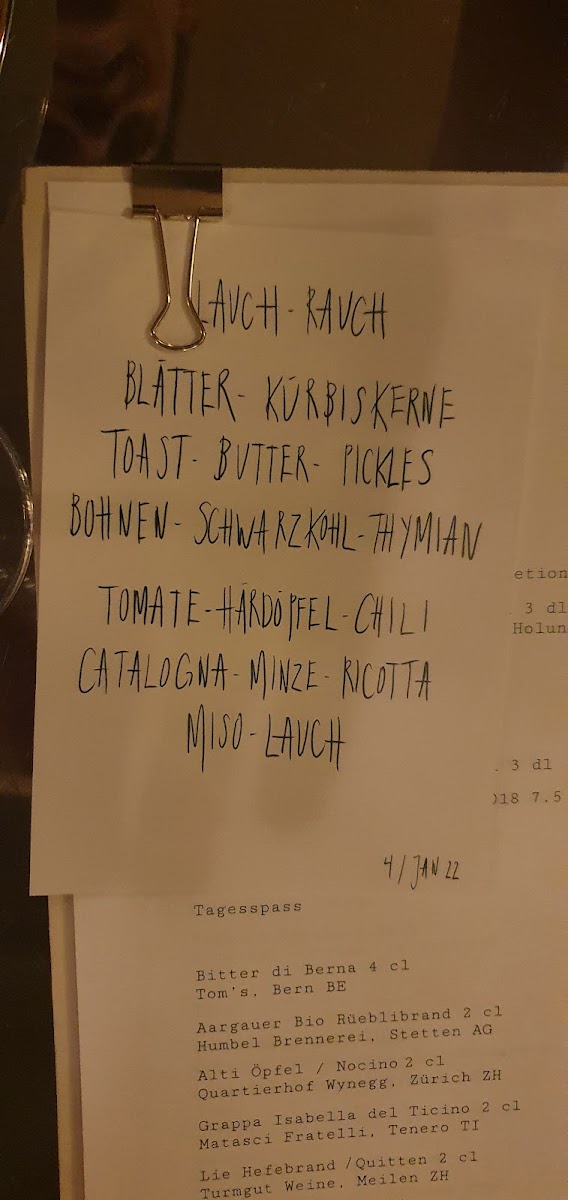 LAUCH - RAUCH
BLÄTTER - KÜRBISKERNE
TOAST - BUTTER - PICKLES
BOHNEN - SCHWARZKOHL - THYMIAN
TOMATE - HÄRDÖPFEL - CHILI
CATALOGNA - MINZE - RICOTTA
MISO - LAUCH
4 / JAN 22
etion
. 3 dl
Holun
. 3 dl
018 7.5
Tagesspass
Bitter di Berna 4 cl
Tom's, Bern BE
Aargauer Bio Rüeblibrand 2 cl
Humbel Brennerei, Stetten AG
Alti Öpfel / Nocino 2 cl
Quartierhof Wynegg, Zürich ZH
Grappa Isabella del Ticino 2 cl
Matasci Fratelli, Tenero TI
Lie Hefebrand /Quitten 2 cl
Turmgut Weine, Meilen ZH